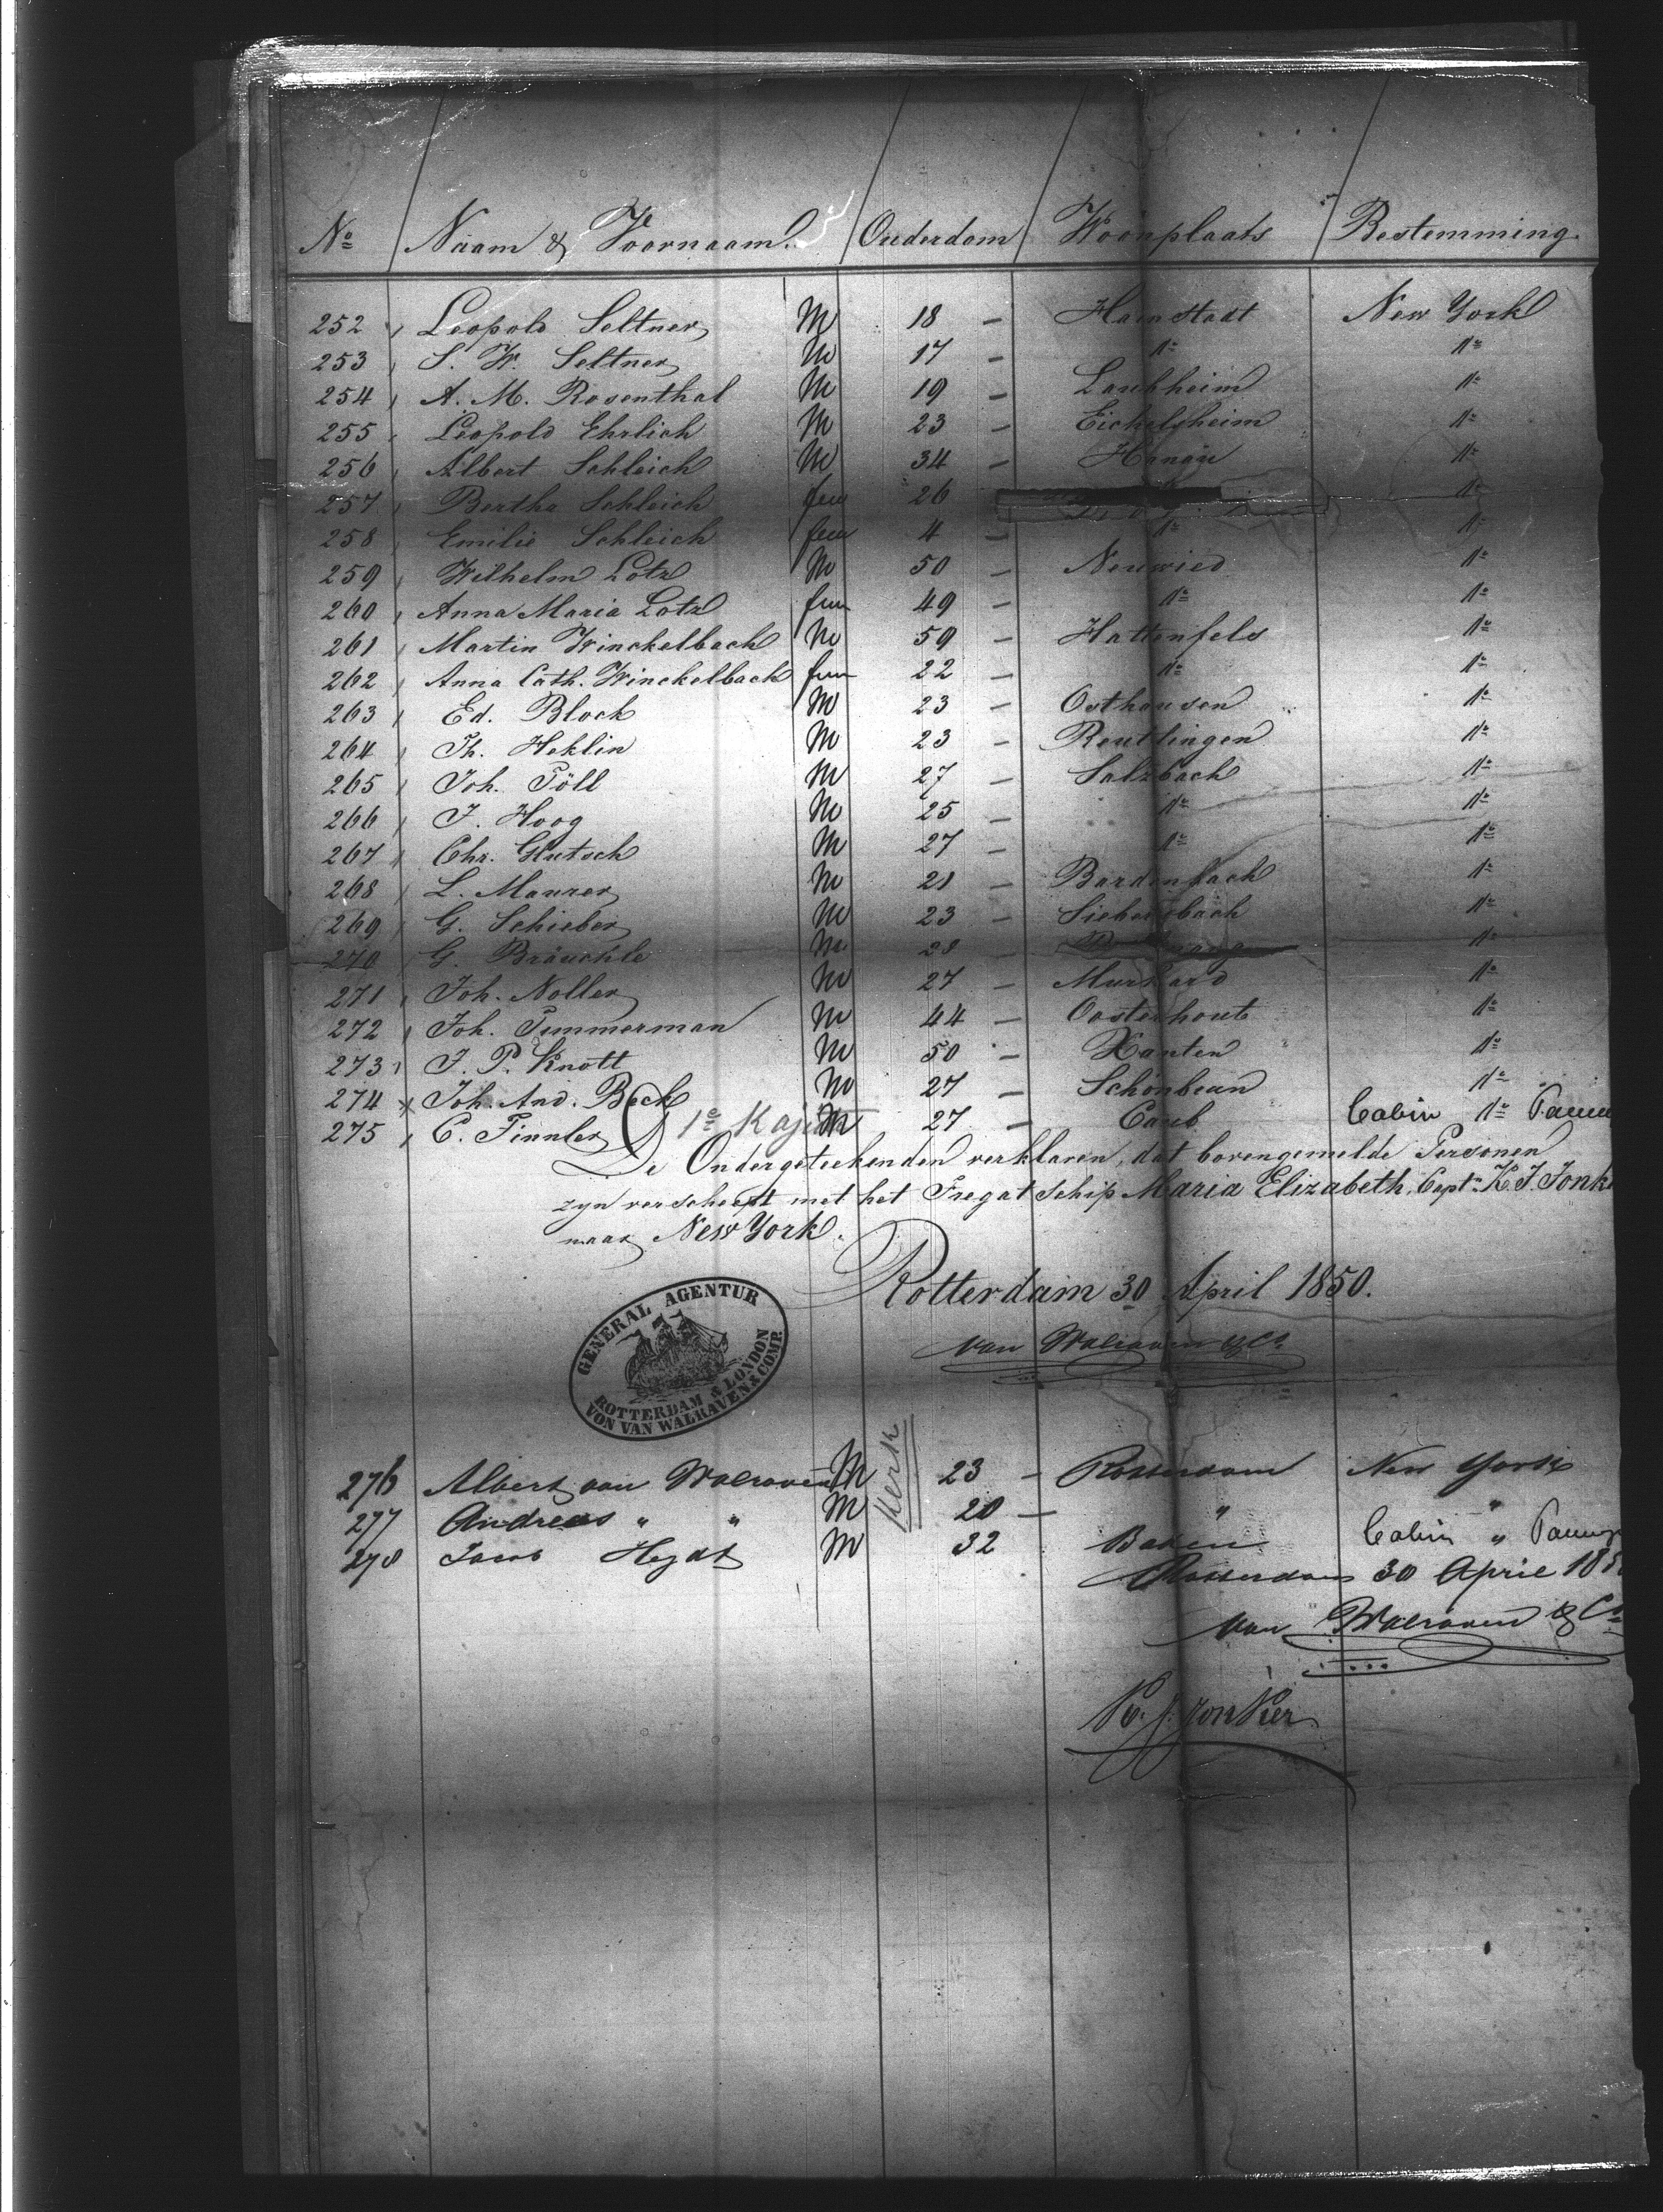 No Naam & Voornaam. Ouderdom Woonplaats Bestemming.
252 Leopold Seltner M 18 — Hainstadt New York
253 S. W. Seltner M 17 — do do
254 A. M. Rosenthal M 19 — Laubheim do
255 Leopold Ehrlich M 23 — Eichelsheim do
256 Albert Schleich M 34 — Hanau do
257 Bertha Schleich fem 26 do
258 Emilie Schleich fem 4 — do do
259 Wilhelm Lotz M 50 — Neuwied do
260 Anna Maria Lotz fem 49 — do do
261 Martin Winckelbach M 59 — Hattenfels do
262 Anna Cath. Winckelbach fem 22 — do do
263 Ed. Block M 23 — Osthausen do
264 Th. Heklin M 23 — Reutlingen do
265 Joh. Föll M 27 — Salzbach do
266 J. Hoog M 25 — do do
267 Chr. Glutsch M 27 — do do
268 L. Maurer M 28 — Bardenbach do
269 G. Schieber M 23 — Siebersbach do
270 G. Bräuchle M 28 — do
271 Joh. Noller M 27 — Murhard do
272 Joh. Timmerman M 44 — Oosterhout do
273 J. P. Knott M 50 — Xanten do
274 Joh. And. Beck M 27 — Schönbrun do
275 C. Finnler 1e Kajuit M 27 — Caub Cabin do
De Ondergeteekenden verklaren, dat bovengemelde Personen
zyn verscheept met het Fregat schip Maria Elizabeth, Captn K. J. Jonk
naar New York.
Rotterdam 30 April 1850.
van Walraven & Co
GENERAL AGENTUR
ROTTERDAM & LONDON
VON VAN WALRAVEN & COMP.
276 Albert van Walraven M 23 — Rotterdam New York
277 Andreas " " M 20 — " "
278 Jacob Heydt M 32 Baden Cabin "
Rotterdam 30 April 18
van Walraven & Co
K. J. Jonker